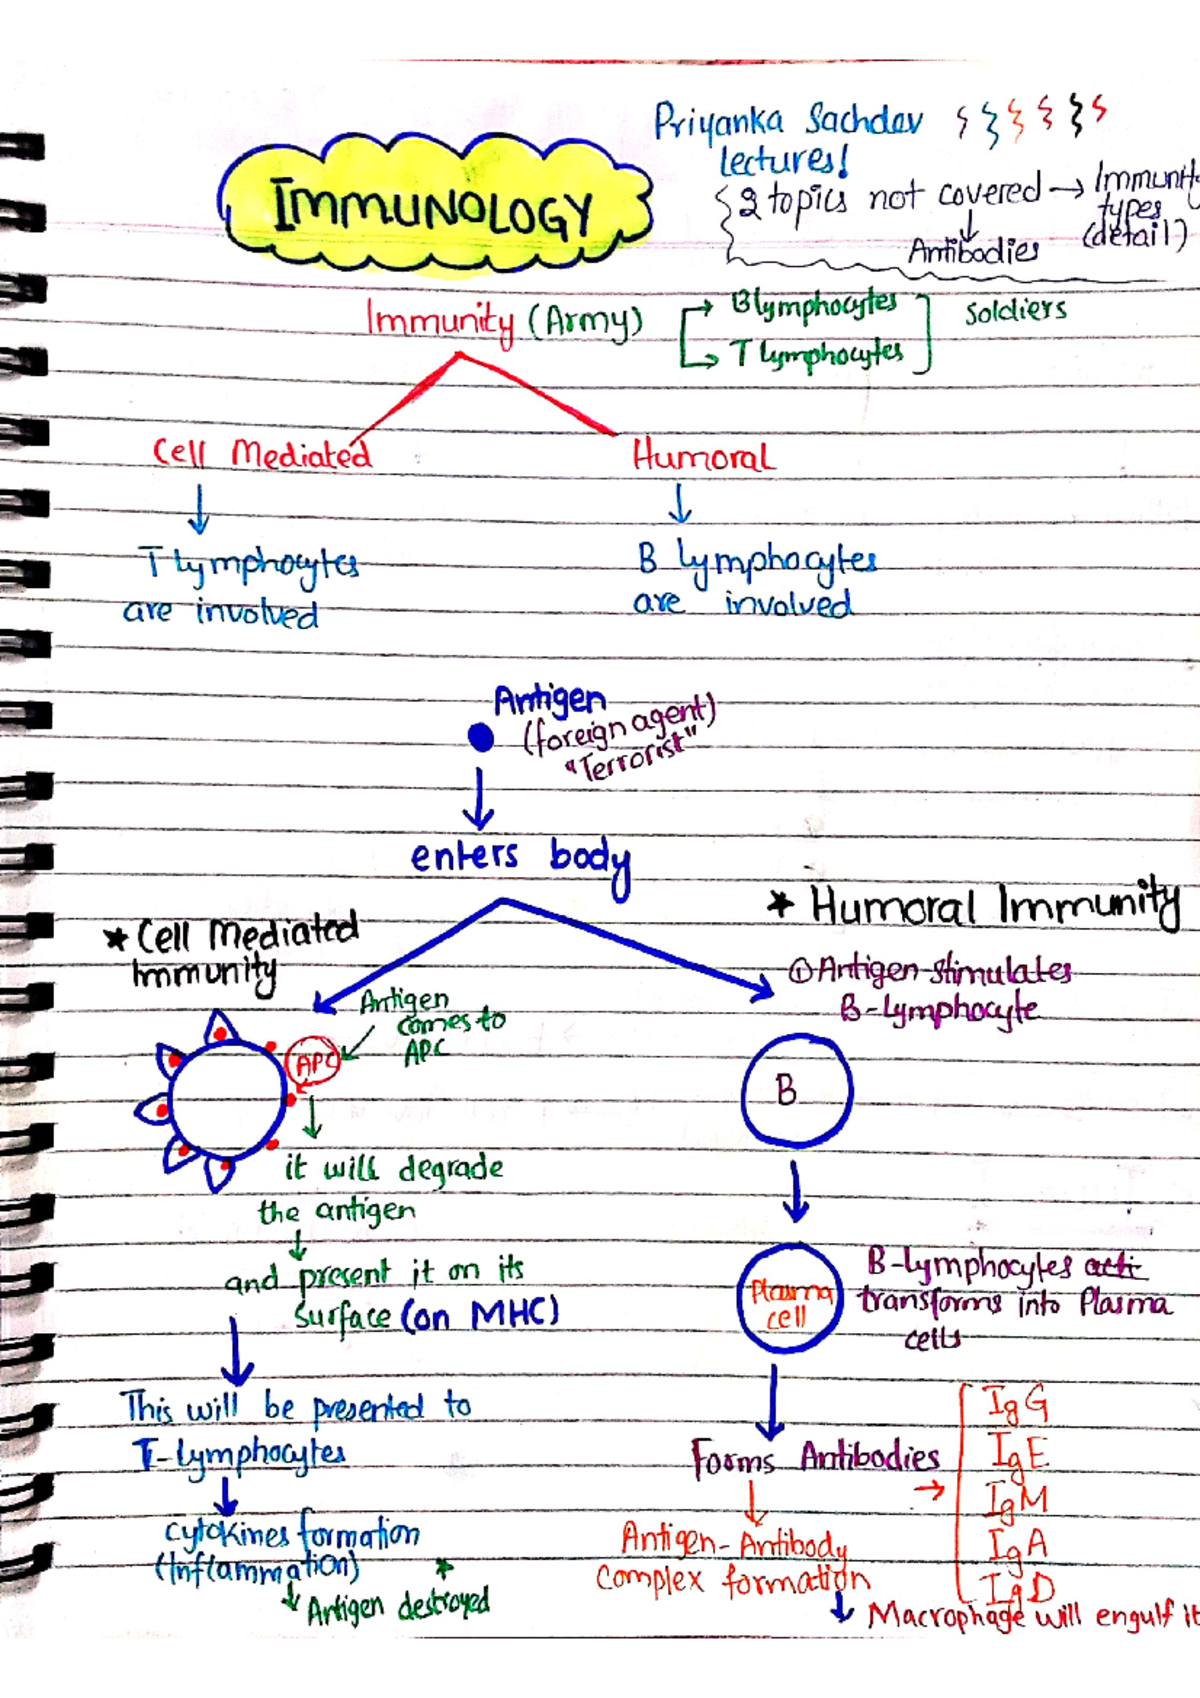 Priyanka Sachdev
lectures!
IMMUNOLOGY
2 topics not covered → Immunit
types
(detail)
↓
Antibodies
Immunity (Army)
→ B lymphocytes
→ T lymphocytes
Soldiers
Cell Mediated
Humoral
↓
↓
T lymphocytes
are involved
B lymphocytes
are involved
Antigen
(foreign agent)
"Terrorist"
↓
enters body
★ Cell Mediated
Immunity
Antigen
comes to
APC
APC
↓
it will degrade
the antigen
↓
and present it on its
surface (on MHC)
↓
This will be presented to
T-lymphocytes
↓
cytokines formation
(Inflammation)
↓ Antigen destroyed
★ Humoral Immunity
① Antigen stimulates
B-lymphocyte
B
↓
Plasma
cell
B-lymphocytes acti
transforms into Plasma
cells
↓
Forms Antibodies
→
IgG
IgE
IgM
IgA
IgD
↓
Antigen-Antibody
complex formation
↓ Macrophage will engulf it